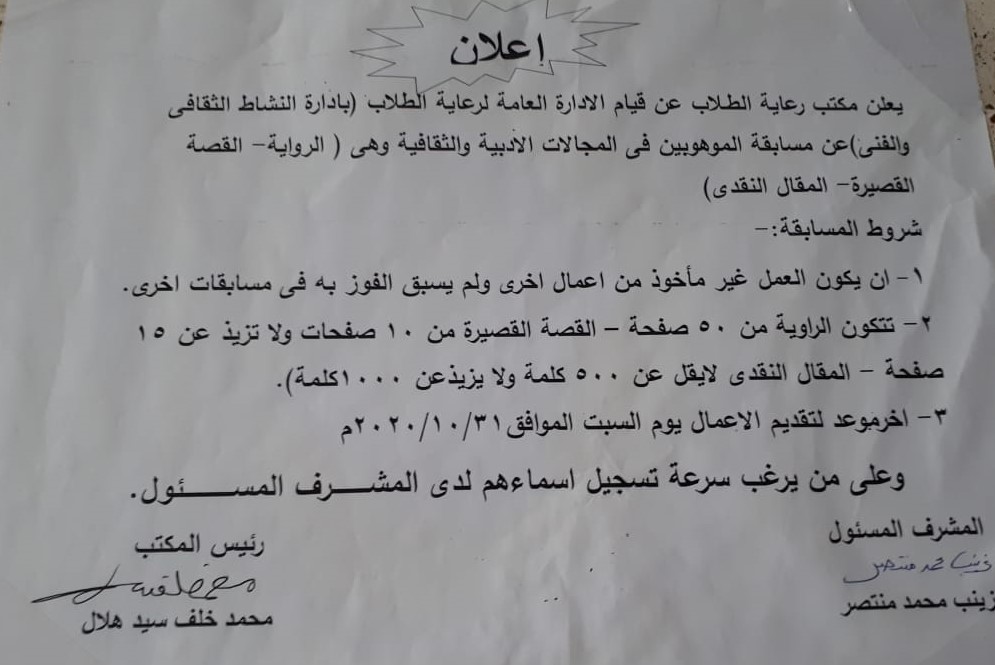 إعلان
يعلن مكتب رعاية الطلاب عن قيام الادارة العامة لرعاية الطلاب (بادارة النشاط الثقافى
والفنى)عن مسابقة الموهوبين فى المجالات الأدبية والثقافية وهى ( الرواية- القصة
القصيرة- المقال النقدى)
شروط المسابقة:-
١- ان يكون العمل غير مأخوذ من اعمال اخرى ولم يسبق الفوز به فى مسابقات اخرى.
٢- تتكون الراوية من ٥٠ صفحة - القصة القصيرة من ١٠ صفحات ولا تزيذ عن ١٥
صفحة - المقال النقدى لايقل عن ٥٠٠ كلمة ولا يزيذعن ١٠٠٠كلمة).
٣- اخرموعد لتقديم الاعمال يوم السبت الموافق٢٠٢٠/١٠/٣١م
وعلى من يرغب سرعة تسجيل اسماءهم لدى المشـــرف المســـــئول.
المشرف المسئول
زينب محمد منتصر
زينب محمد منتصر
رئيس المكتب
محمد خلف سيد هلال